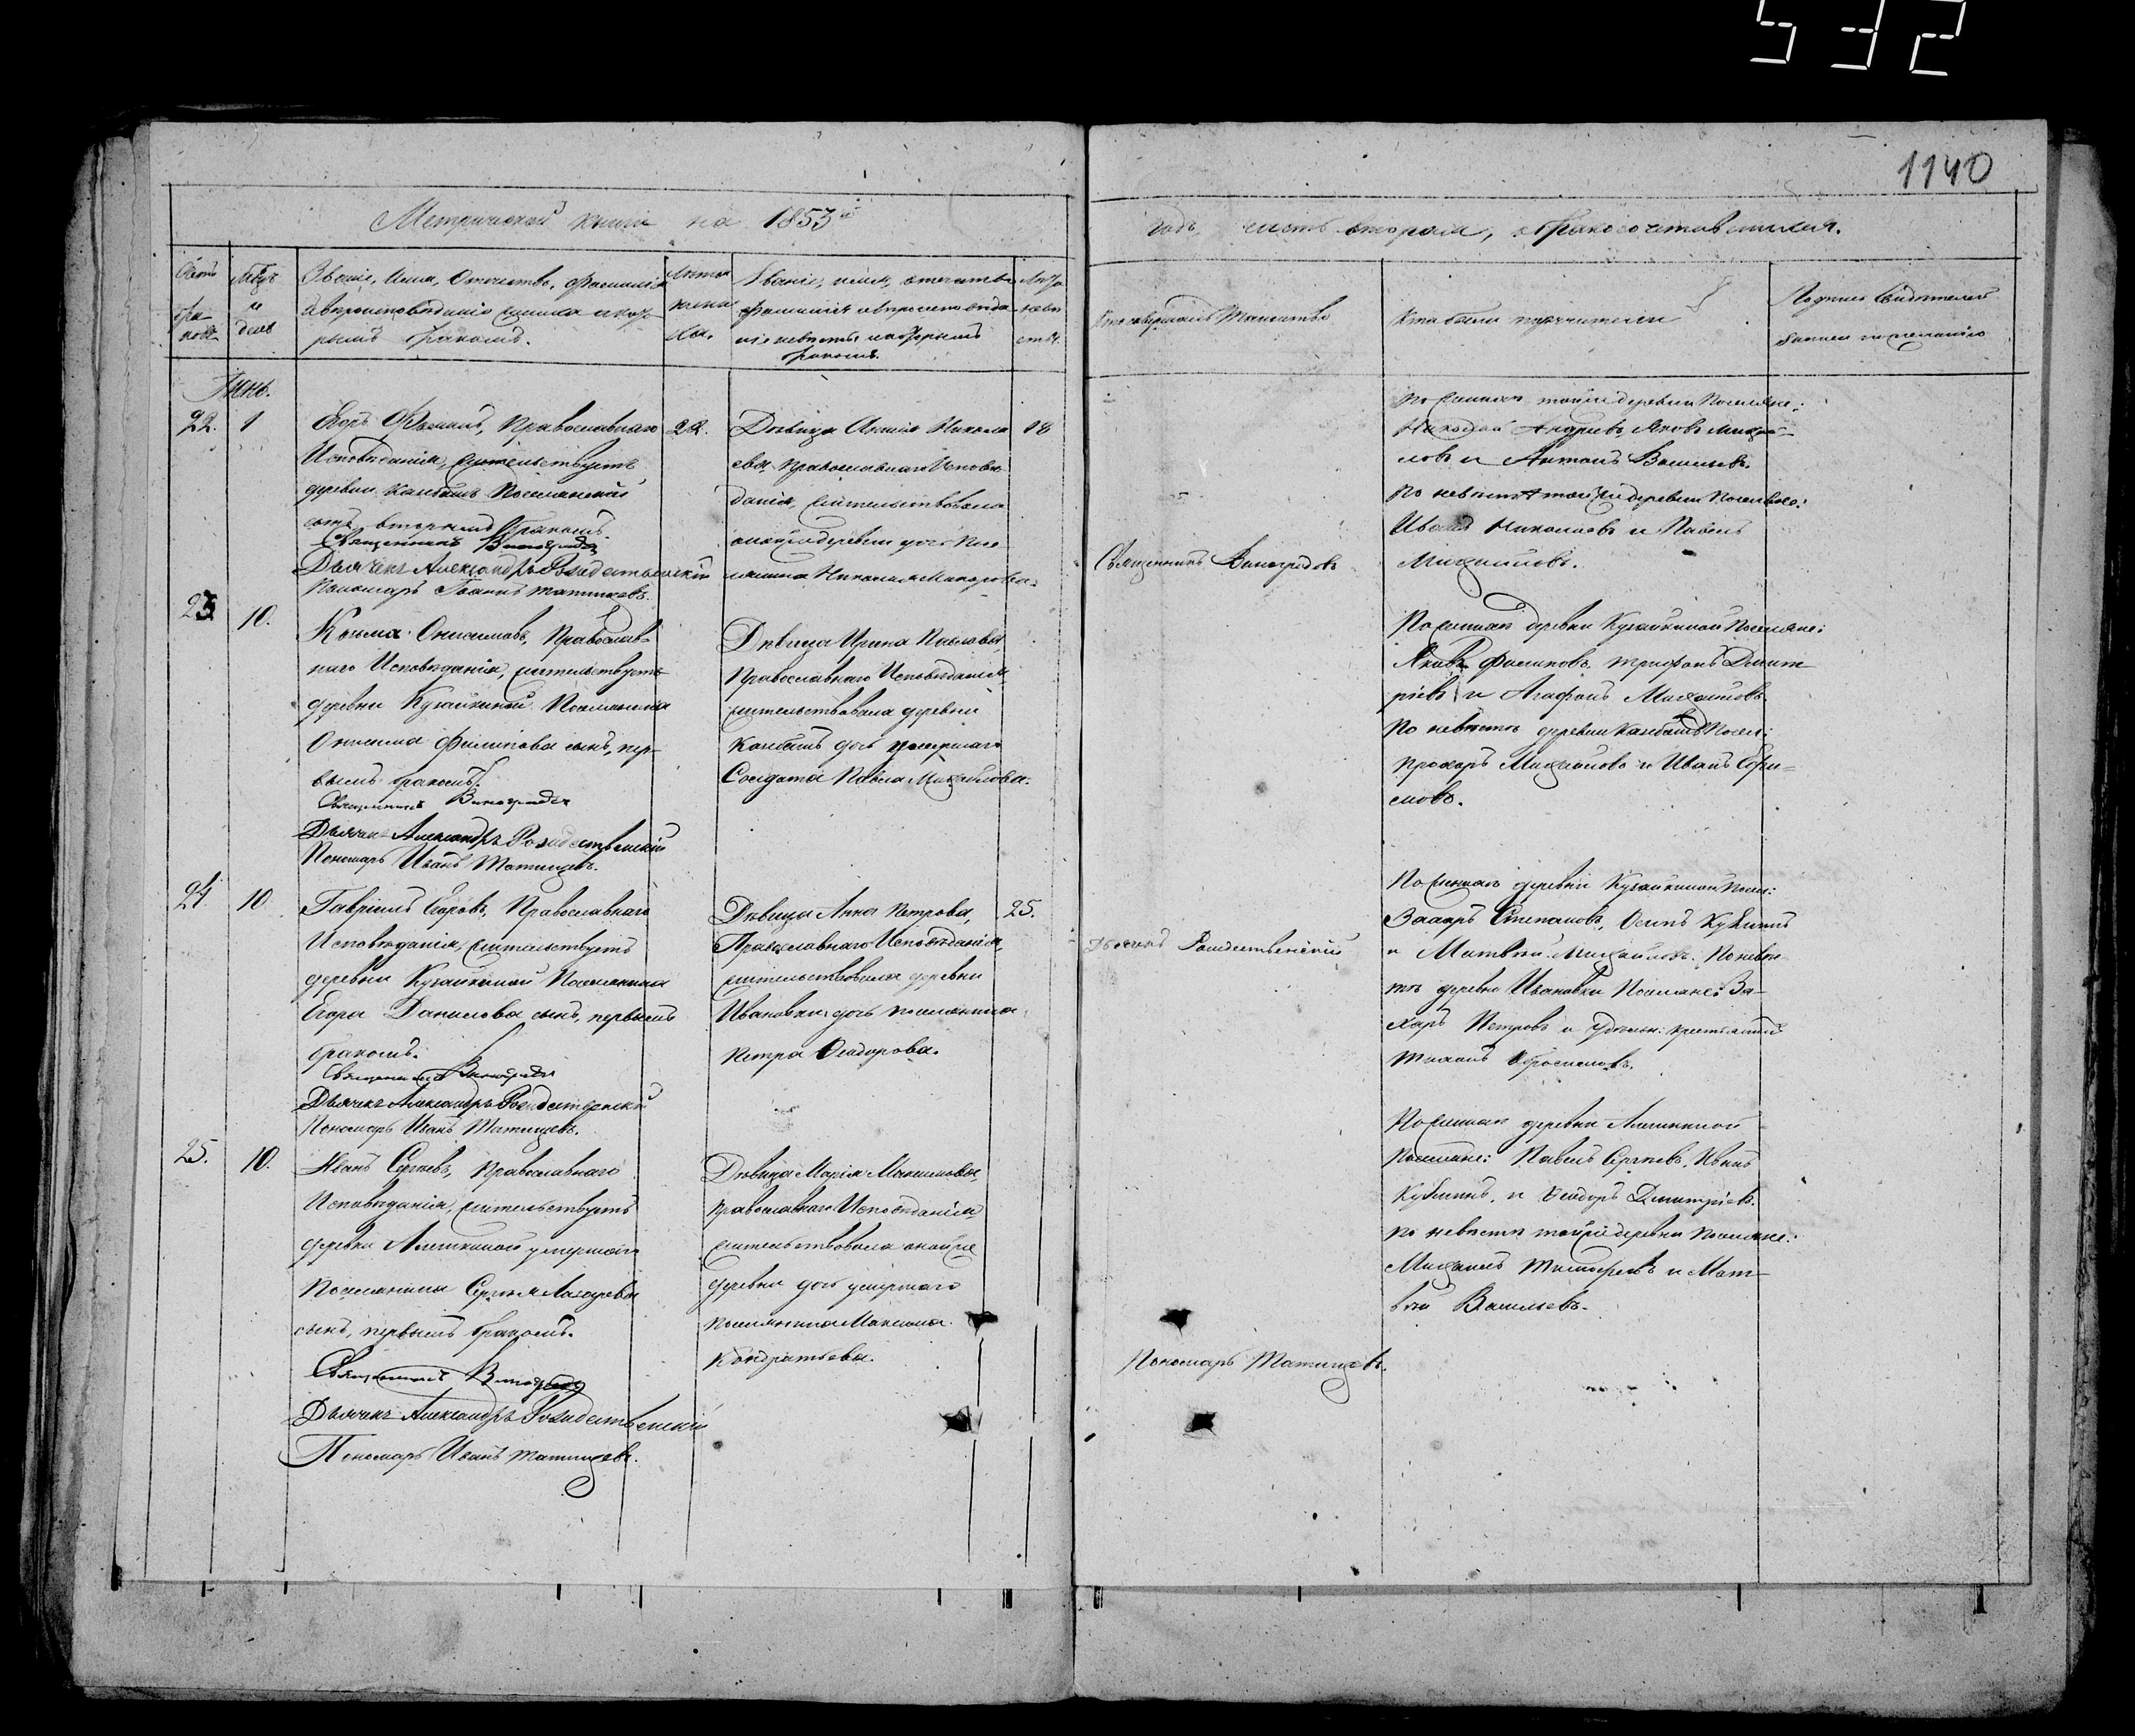 532
1140
Метрической книги на 1853й
годъ, часть вторая, о бракосочетавшихся.
Счетъ
бра-
ковъ
Мѣсяцъ
и
день
Званіе, имя, отчество, фамилія
и вѣроисповѣданіе жениха и кото-
рымъ бракомъ.
Лѣта
жени
ха.
Званіе, имя, отчество
фамилія и вѣроисповѣда
ніе невѣсты и которымъ
бракомъ.
Лѣта
невѣ
сты.
Кто совершалъ Таинство
Кто были поручители
Подпись свидѣтелей
записи по желанію
22.
1
Егоръ Ѳоминъ, Православнаго
Исповѣданія, жительствуетъ
деревни Поселянскій
сынъ вторымъ бракомъ.
Священникъ Виноградовъ
Дьячекъ Александръ Рождественскій
Пономарь Іоаннъ Татищевъ.
22.
Дѣвица Никола
ева Православнаго Исповѣ
данія, жительствовала
оной же деревни дочь Посе
лянина Николая Макарова.
18
Священникъ Виноградовъ
по женихѣ той же деревни Поселяне:
Николай Андреевъ, Яковъ Михай-
ловъ и Антонъ Васильевъ.
по невѣстѣ той же деревни Поселяне:
Иванъ Николаевъ и Павелъ
Михайловъ.
23
10.
Козьма Онисимовъ, Православ-
наго Исповѣданія, жительствуетъ
деревни Кугайкиной Поселянина
Онисима Филипова сынъ, пер-
вымъ бракомъ.
Священникъ Виноградовъ
Дьячекъ Александръ Рождественскій
Пономарь Иванъ Татищевъ.
Дѣвица Ирина Павлова,
Православнаго Исповѣданія,
жительствовала деревни
дочь умершаго
Солдата Павла Михайлова.
По женихѣ деревни Кугайкиной Поселяне:
Яковъ Филиповъ, Трифонъ Димит-
ріевъ и Агафонъ Михайловъ.
По невѣстѣ деревни Посел:
Прохоръ Михайловъ и Иванъ Ефи-
мовъ.
24
10
Гавріилъ Егоровъ, Православнаго
Исповѣданія, жительствуетъ
деревни Кугайкиной Поселянина
Егора Данилова сынъ, первымъ
бракомъ.
Священникъ Виноградовъ
Дьячекъ Александръ Рождественскій
Пономарь Иванъ Татищевъ.
Дѣвица Анна Петрова,
Православнаго Исповѣданія,
жительствовала деревни
Ивановки дочь поселянина
Петра Ѳеодорова.
25.
Дьячекъ Рождественскій
По женихѣ деревни Кугайкиной Посел:
Захаръ Степановъ, Осипъ Кузминъ
и Матвѣй Михайловъ. По невѣс-
тѣ деревни Ивановки Поселяне: За-
харъ Петровъ и удѣльн: крестьянинъ
25.
10.
Иванъ Сергѣевъ, Православнаго
Исповѣданія, жительствуетъ
деревни Алешкиной умершаго
Поселянина Сергѣя Лазарева
сынъ, первымъ бракомъ.
Священникъ Виноградовъ
Дьячекъ Александръ Рождественскій
Пономарь Иванъ Татищевъ.
Дѣвица Марія Максимова,
Православнаго Исповѣданія
жительствовала оной же
деревни дочь умершаго
поселянина Максима
Кондратьева.
Пономарь Татищевъ.
По женихѣ деревни Алешкиной
Поселяне: Павелъ Сергѣевъ, Иванъ
Кузминъ, и Ѳеодоръ Димитріевъ.
по невѣстѣ той же деревни Поселяне:
Михаилъ Тимофеевъ и Мат-
вѣй Васильевъ.